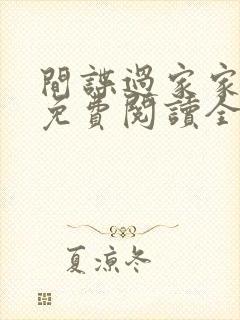 間諜過家家
免費閱讀全
夏涼冬